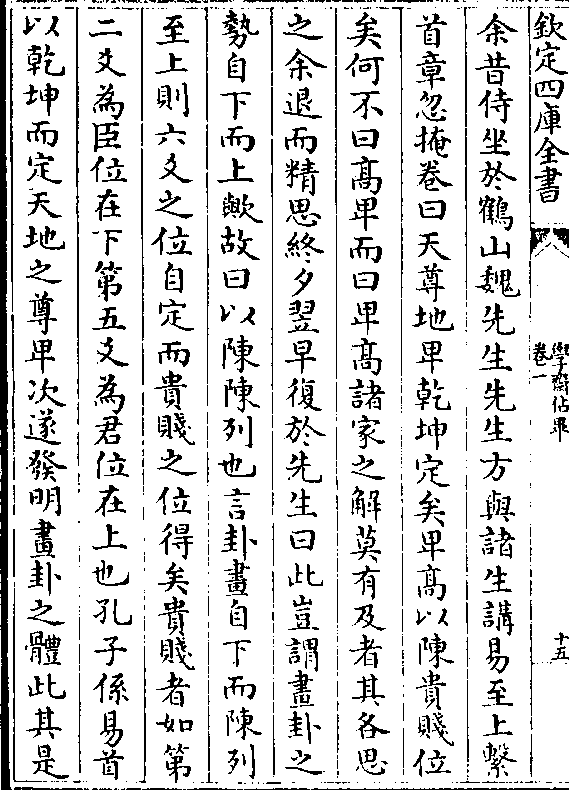 欽定四庫全書
學齋佔畢
卷一
十五
余昔侍坐於鶴山魏先生先生方與諸生講易至上繫
首章忽掩卷曰天尊地卑乾坤定矣卑高以陳貴賤位
矣何不曰高卑而曰卑高諸家之解莫有及者其各思
之余退而精思終夕翌早復於先生曰此豈謂畫卦之
勢自下而上歟故曰以陳陳列也言卦畫自下而陳列
至上則六爻之位自定而貴賤之位得矣貴賤者如第
二爻為臣位在下第五爻為君位在上也孔子係易首
以乾坤而定天地之尊卑次遂發明畫卦之體此其是